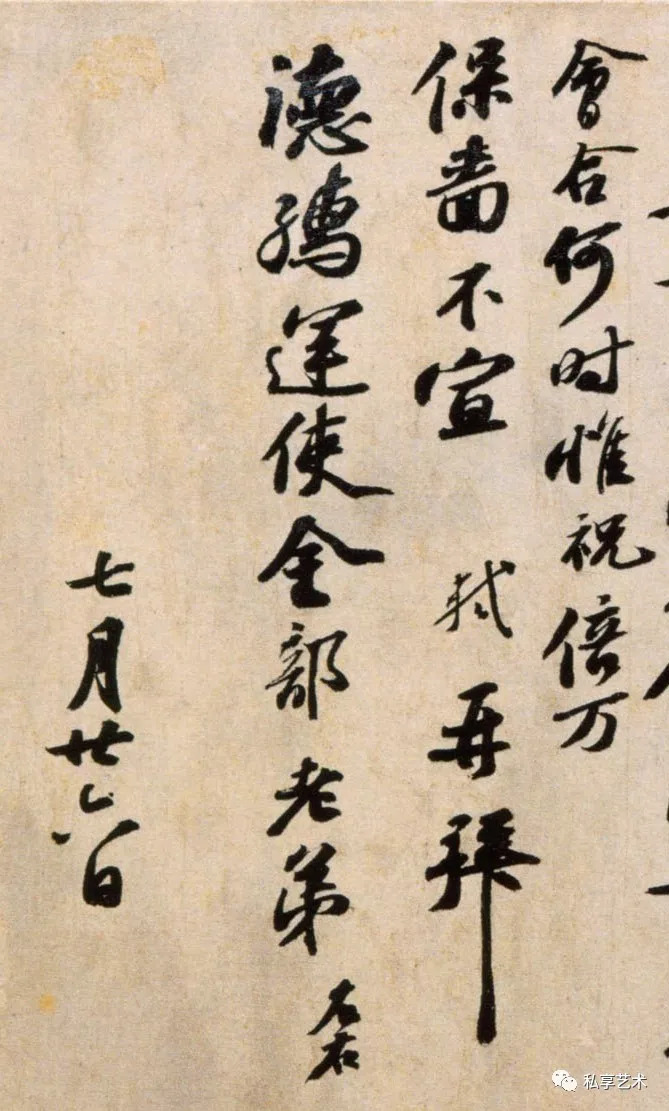 會合何时惟祝倍万
保嗇不宣 軾 再拜
德孺運使金部老弟 左右
七月廿六日
私享艺术